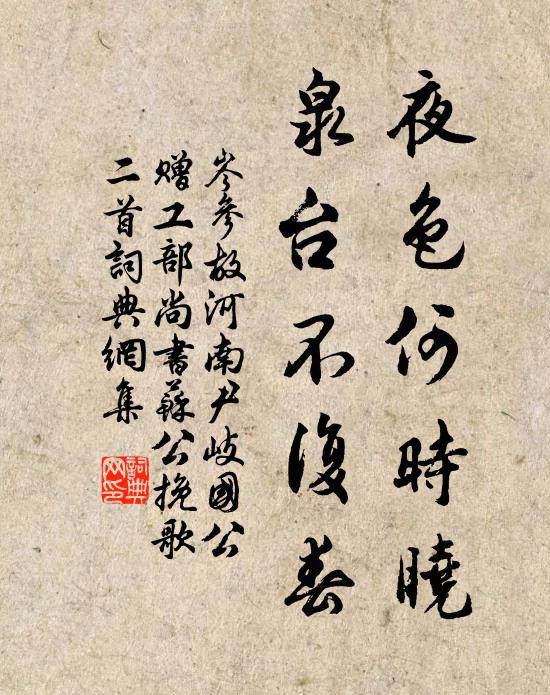 夜色何時曉
泉台不復春
岑參故河南尹岐國公
贈工部尚書蘇公挽歌
二首詞典網集
詞典網印